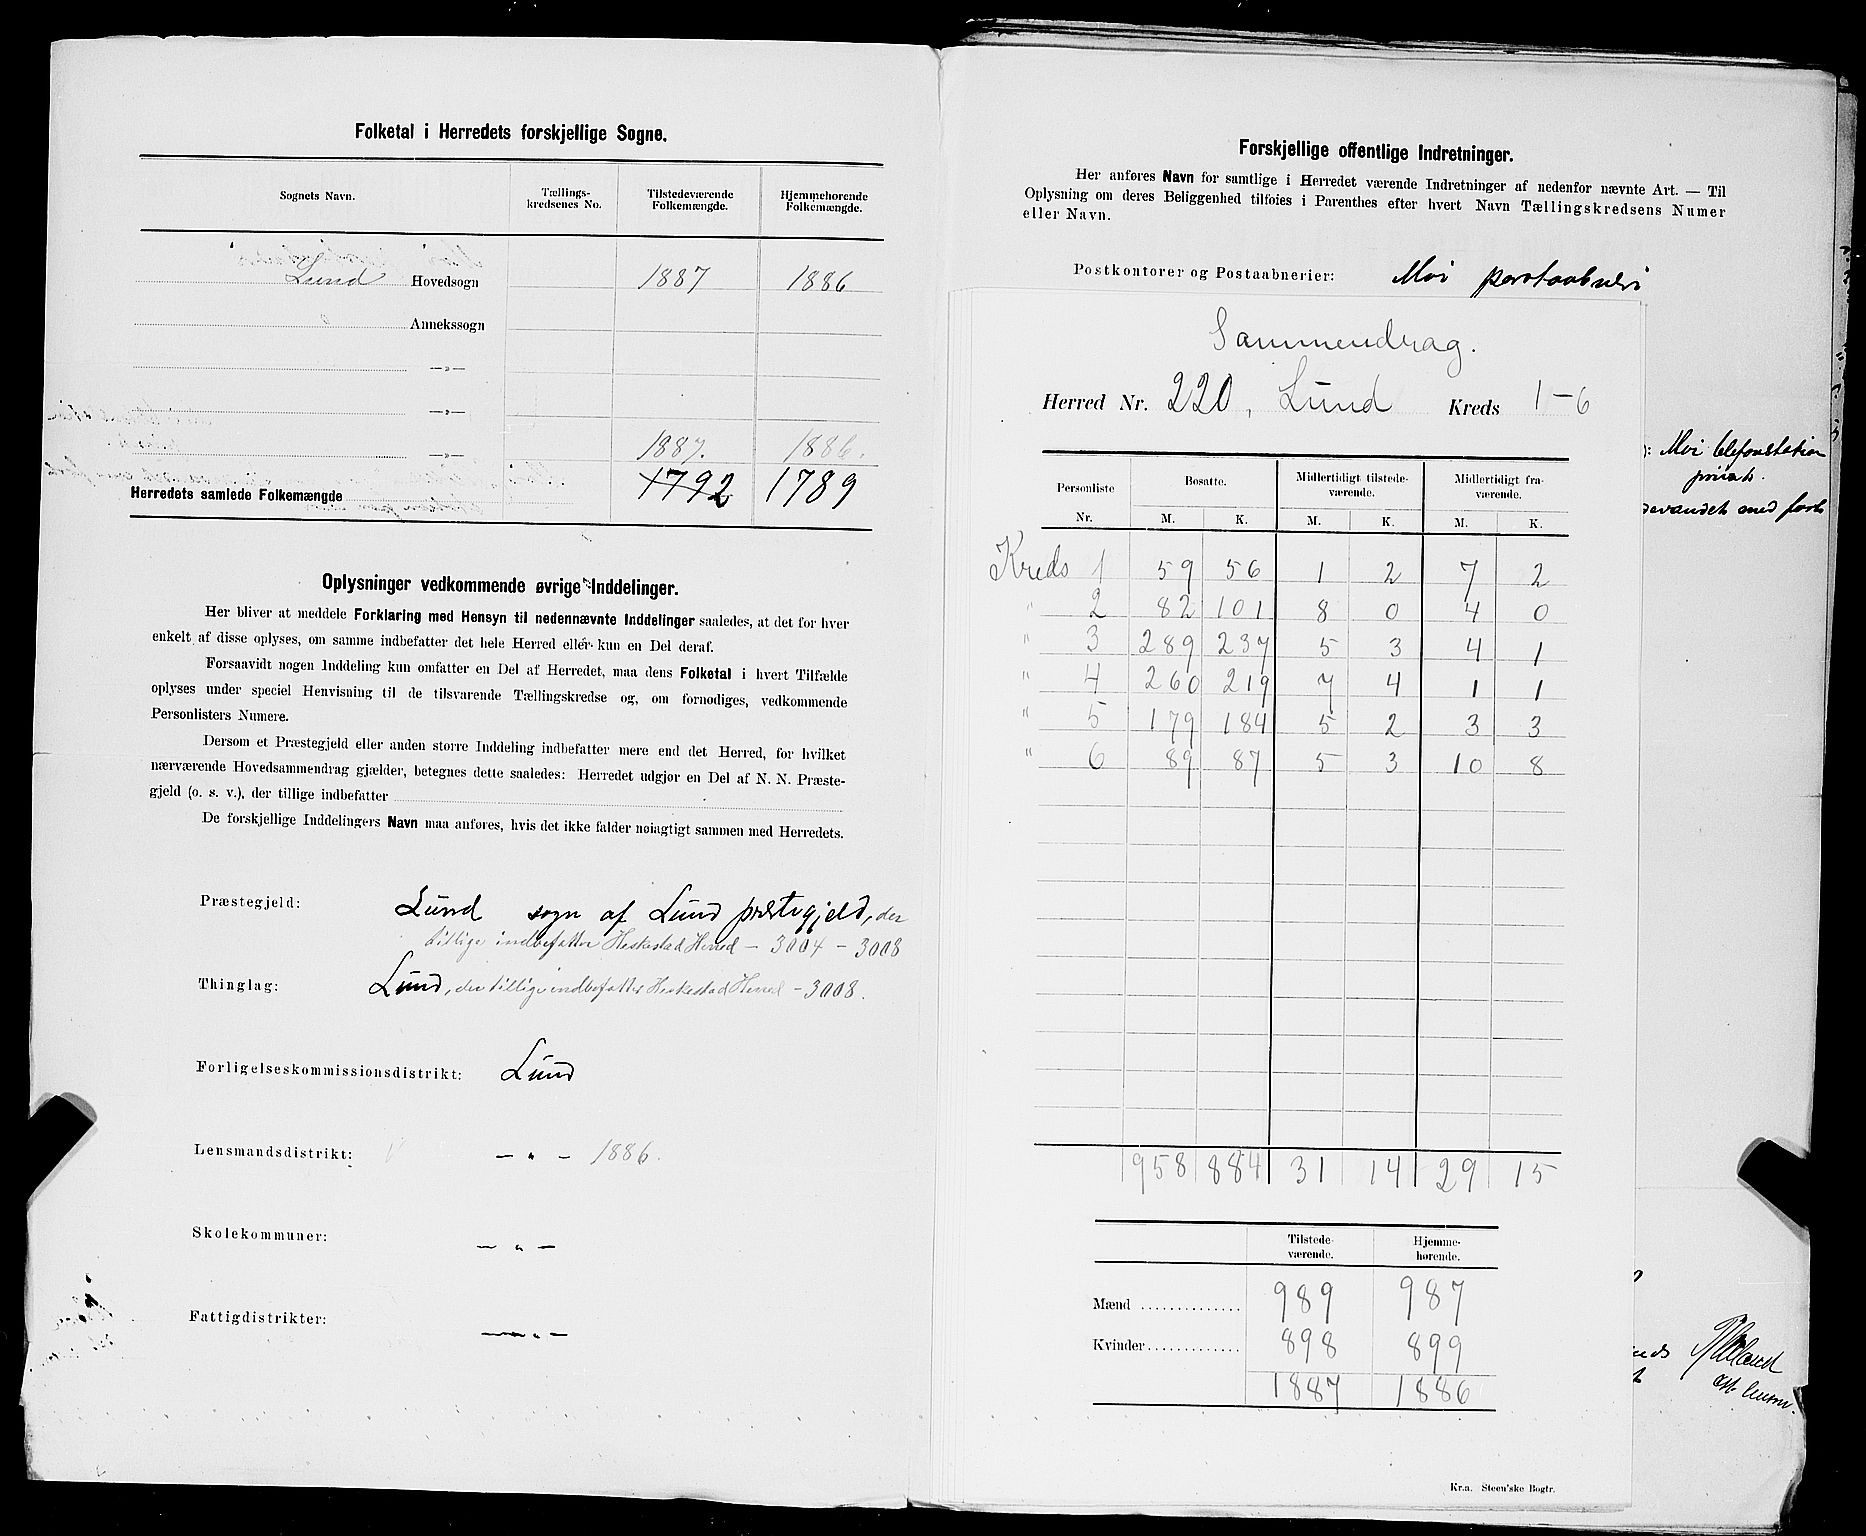 Folketal i Herredets forskjellige Sogne.
Sognets Navn. Tællings-kredsenes No. Tilstedeværende Folkemængde. Hjemmehørende Folkemængde.
Lund Hovedsogn 1887 1886
Annekssogn
—„—
—„—
1887. 1886.
Herredets samlede Folkemængde 1792 1789
Oplysninger vedkommende øvrige Inddelinger.
Her bliver at meddele Forklaring med Hensyn til nedennævnte Inddelinger saaledes, at det for hver
enkelt af disse oplyses, om samme indbefatter det hele Herred eller kun en Del deraf.
Forsaavidt nogen Inddeling kun omfatter en Del af Herredet, maa dens Folketal i hvert Tilfælde
oplyses under speciel Henvisning til de tilsvarende Tællingskredse og, om fornødiges, vedkommende
Personlisters Numere.
Dersom et Præstegjeld eller anden større Inddeling indbefatter mere end det Herred, for hvilket
nærværende Hovedsammendrag gjælder, betegnes dette saaledes: Herredet udgjør en Del af N. N. Præste-
gjeld (o. s. v.), der tillige indbefatter
De forskjellige Inddelingers Navn maa anføres, hvis det ikke falder nøiagtigt sammen med Herredets.
Præstegjeld: Lund sogn af Lund præstegjeld, der
tillige indbefatter Heskestad Herred — 3004 — 3008
Thinglag: Lund, der tillige indbefatter Heskestad Herred — 3008.
Forligelseskommissionsdistrikt: Lund
Lensmandsdistrikt: — „ — 1886.
Skolekommuner: — „ —
Fattigdistrikter: — „ —
Forskjellige offentlige Indretninger.
Her anføres Navn for samtlige i Herredet værende Indretninger af nedenfor nævnte Art. — Til
Oplysning om deres Beliggenhed tilføies i Parenthes efter hvert Navn Tællingskredsens Numer
eller Navn.
Postkontorer og Postaabnerier: Moi postaabneri
Sammendrag.
Herred Nr. 220, Lund Kreds 1–6
Personliste Nr. Bosatte. Midlertidigt tilstede-værende. Midlertidigt fra-værende.
M. K. M. K. M. K.
Kreds 1 59 56 1 2 7 2
" 2 82 101 8 0 4 0
" 3 289 237 5 3 4 1
" 4 260 219 7 4 1 1
" 5 179 184 5 2 3 3
" 6 89 87 5 3 10 8
958 884 31 14 29 15
Tilstede-værende. Hjemme-hørende.
Mænd 989 987
Kvinder 898 899
1887 1886
Kr.a. Steen'ske Bogtr.
): Moi telefonstation
privat.
med